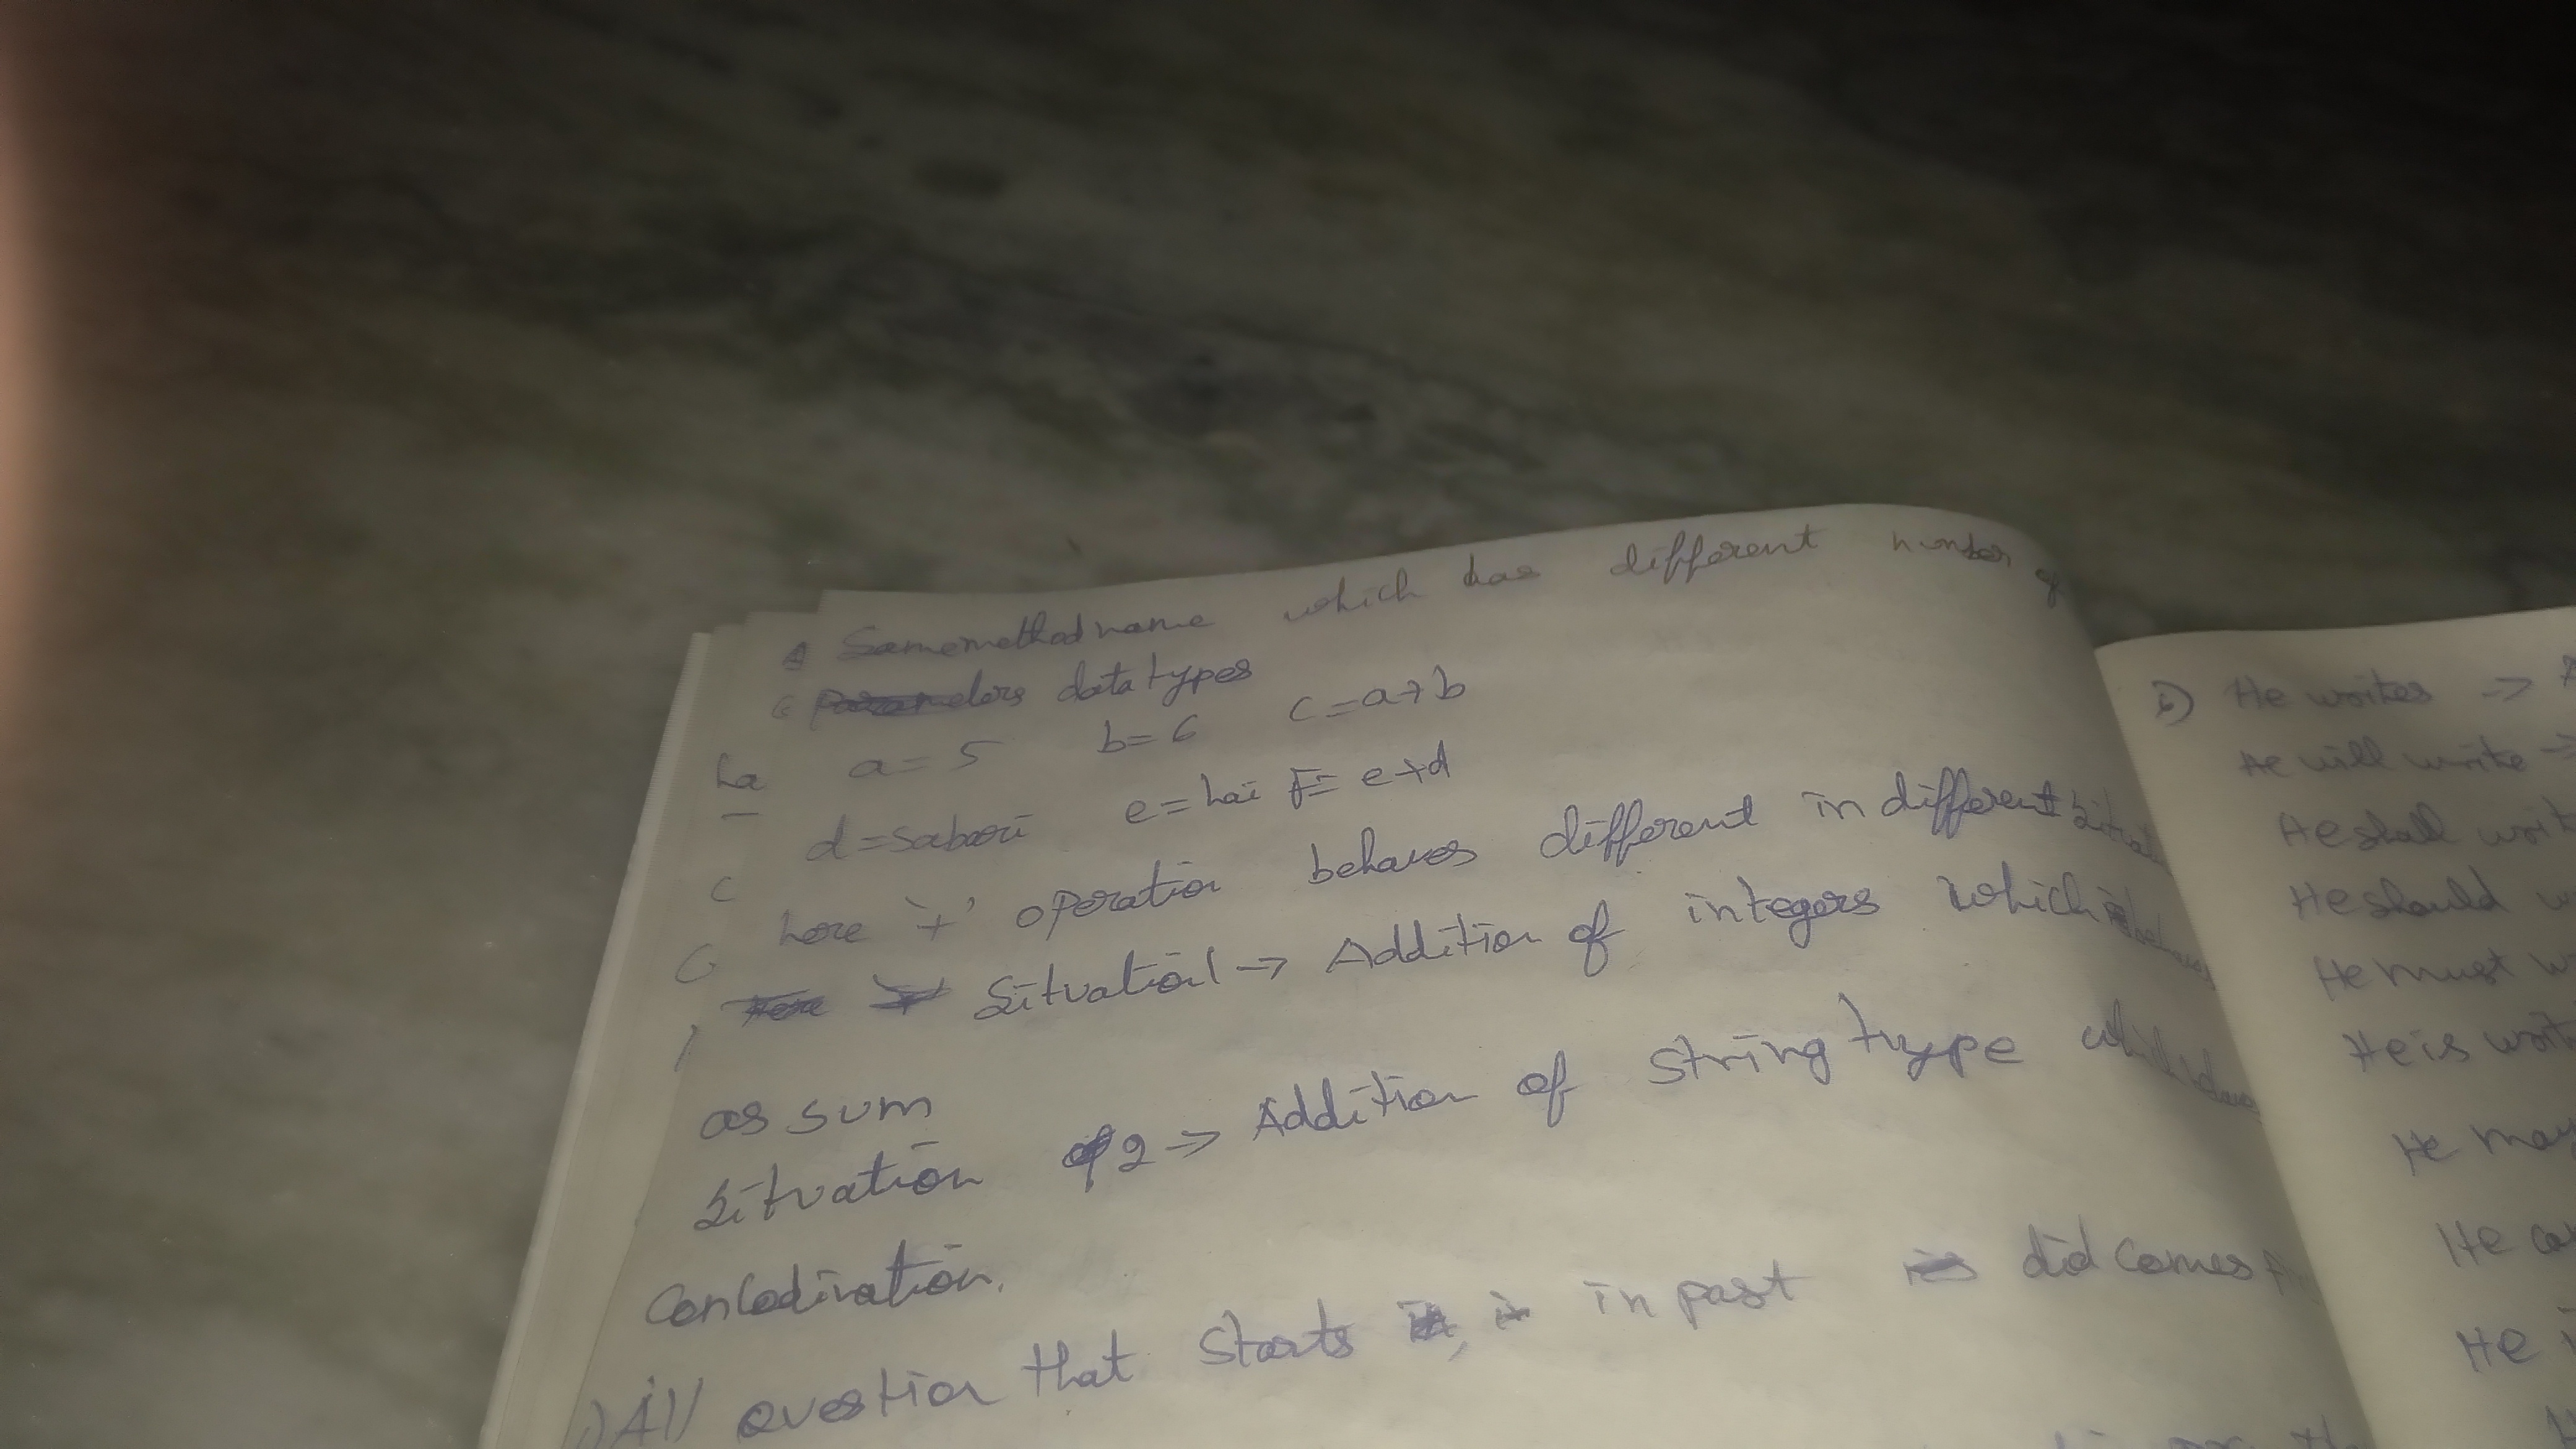 Samemethodname which has different number of
data types
a=5 b=6 c=a+b
d=sabari e=hai F= e+d
here '+' operation behaves different in different
Situation1 -> Addition of integers which
as sum
Situation 2 -> Addition of String type
Concadination.
All question that starts in past did comes
He writes ->
He will write ->
He shall
He should
He must
He is
He may
He
He